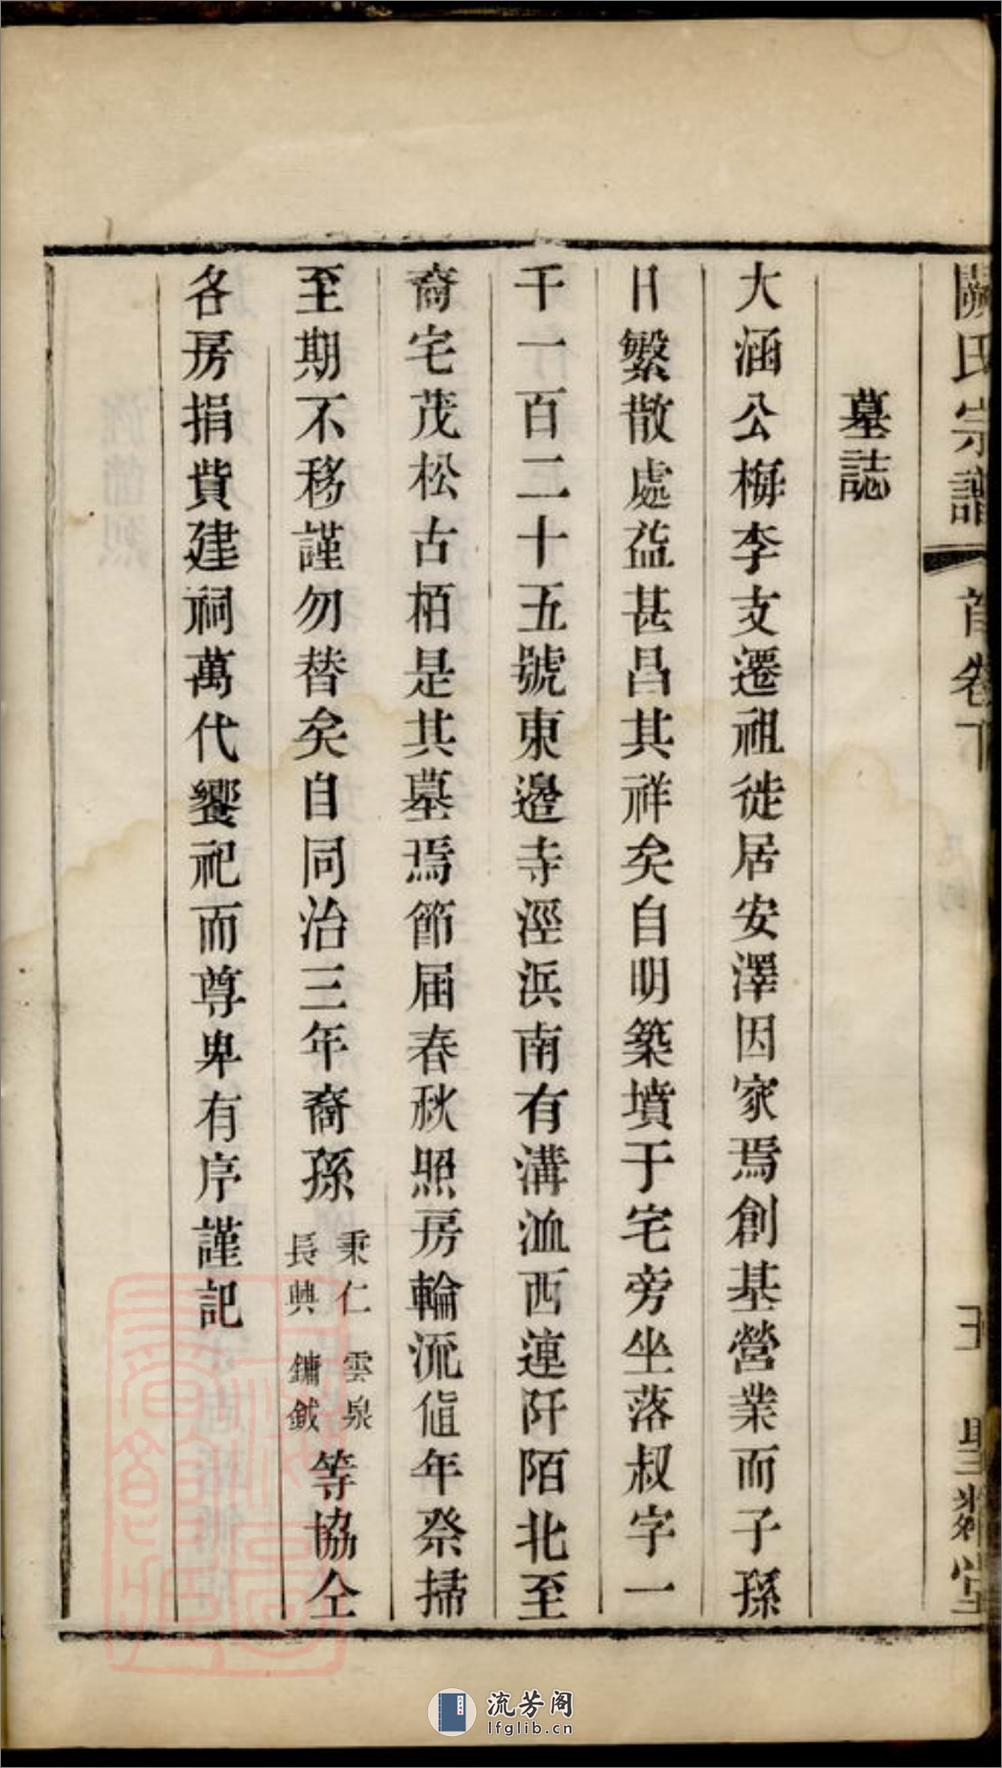 闕氏宗譜 首卷下
墓誌
大涵公梅李支遷祖徙居安澤因家焉創基營業而子孫
日繁散處益甚昌其祥矣自明築墳于宅旁坐落叔字一
千一百二十五號東邉寺涇浜南有溝洫西連阡陌北至
裔宅茂松古栢是其墓焉節届春秋照房輪流值年祭掃
至期不移謹勿替矣自同治三年裔孫秉仁 雲泉 長興 鏞鉞等協仝
各房捐貲建祠萬代饗祀而尊卑有序謹記
流芳阁
lfglib.cn